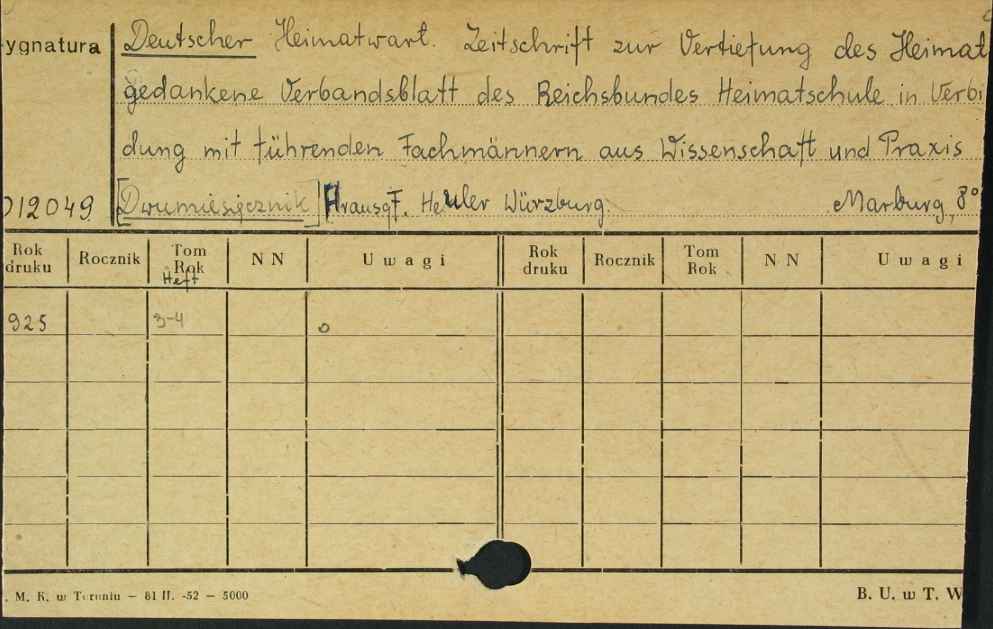 ygnatura Deutscher Heimatwart. Zeitschrift zur Vertiefung des Heimat
gedankene Verbandsblatt des Reichsbundes Heimatschule in Verbi
dung mit führenden Fachmännern aus Wissenschaft und Praxis
012049 [Dwumiesięcznik] Hrausg F. Heuler Würzburg. Marburg, 8°
Rok druku Rocznik Tom Rok Heft N N Uwagi Rok druku Rocznik Tom Rok N N Uwagi
925 3-4 o
. M. K. w Toruniu — 81 II. -52 — 5000 B. U. w T. W